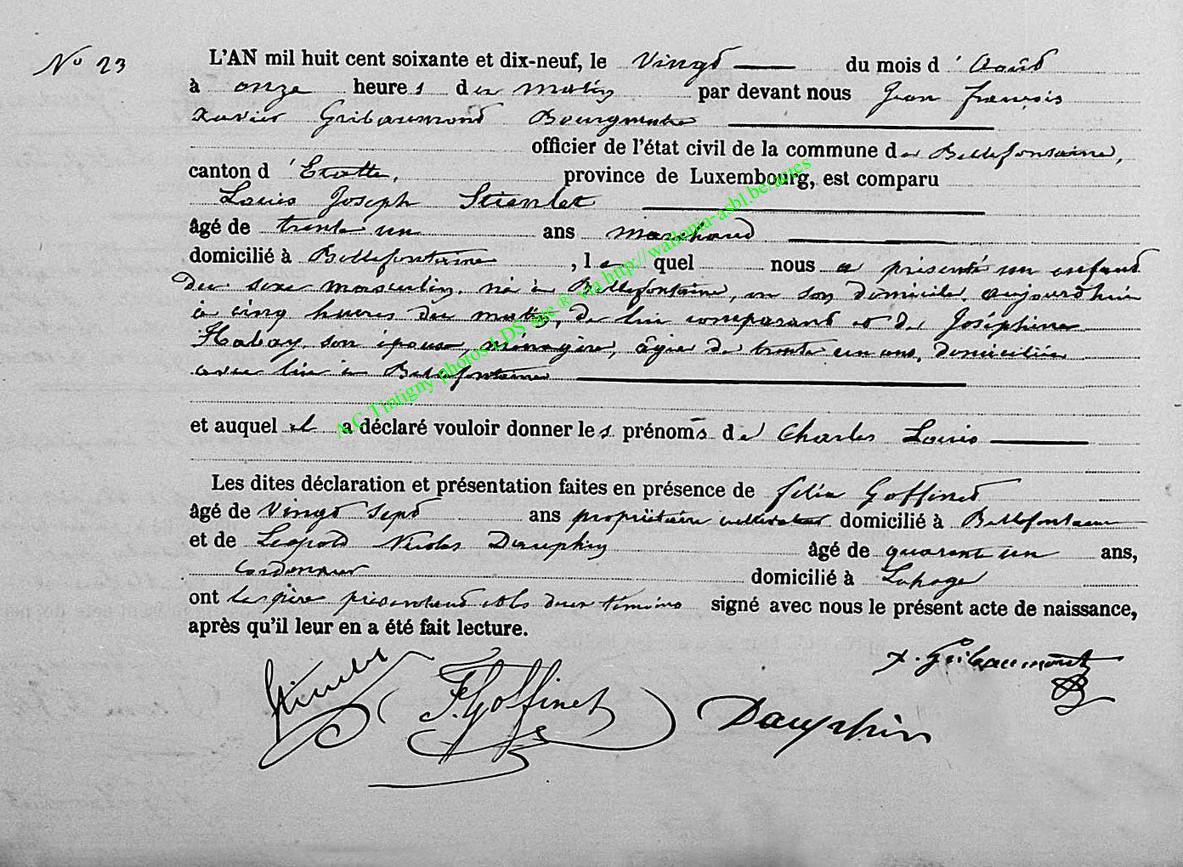 No 23
L'AN mil huit cent soixante et dix-neuf, le Vingt du mois d'Août
à onze heures du matin par devant nous Jean François
Xavier Gribaumont Bourgmestre
officier de l'état civil de la commune de Bellefontaine,
canton d'Etalle, province de Luxembourg, est comparu
Louis Joseph Stienlet
âgé de trente un ans marchand
domicilié à Bellefontaine, lequel nous a présenté un enfant
du sexe masculin, né à Bellefontaine, en son domicile, aujourd'hui
à cinq heures du matin, de lui comparant et de Joséphine
Habay, son épouse, ménagère, âgée de trente un ans, domiciliée
avec lui à Bellefontaine
et auquel il a déclaré vouloir donner les prénoms de Charles Louis
Les dites déclaration et présentation faites en présence de Félix Goffinet
âgé de Vingt sept ans propriétaire cultivateur domicilié à Bellefontaine
et de Léopold Nicolas Dauphin âgé de quarante un ans,
cordonnier domicilié à Lahage
ont le père présentant et les deux témoins signé avec nous le présent acte de naissance,
après qu'il leur en a été fait lecture.
X. Gribaumont
Stienlet F. Goffinet Dauphin
A.C. Tintigny photos LDS via http://wallonia-asbl.be/actes